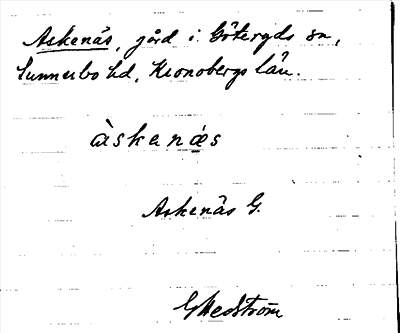 Askenäs, gård i Göteryds sn,
Sunnerbo hd, Kronobergs län.
àskenæs
Askenäs G.
G Hedström